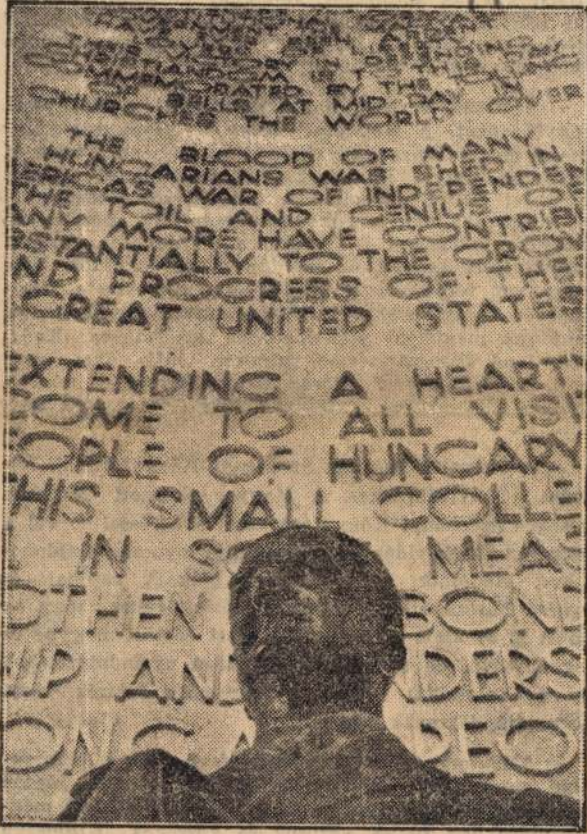 COMMEMORATED BY THE TOLLING
OF BELLS AT MID DAY IN
CHURCHES THE WORLD OVER
THE BLOOD OF MANY
HUNGARIANS WAS SHED IN
ERICAS WAR OF INDEPENDEN
THE TOIL AND GENIUS OF
ANY MORE HAVE CONTRIB
BSTANTIALLY TO THE GROW
ND PROGRESS OF THE
GREAT UNITED STATES
EXTENDING A HEART
COME TO ALL VISI
OPLE OF HUNGARY
HIS SMALL COLLE
IN SO MEAS
GTHEN BOND
HIP AND NDERS
ONG A PEO